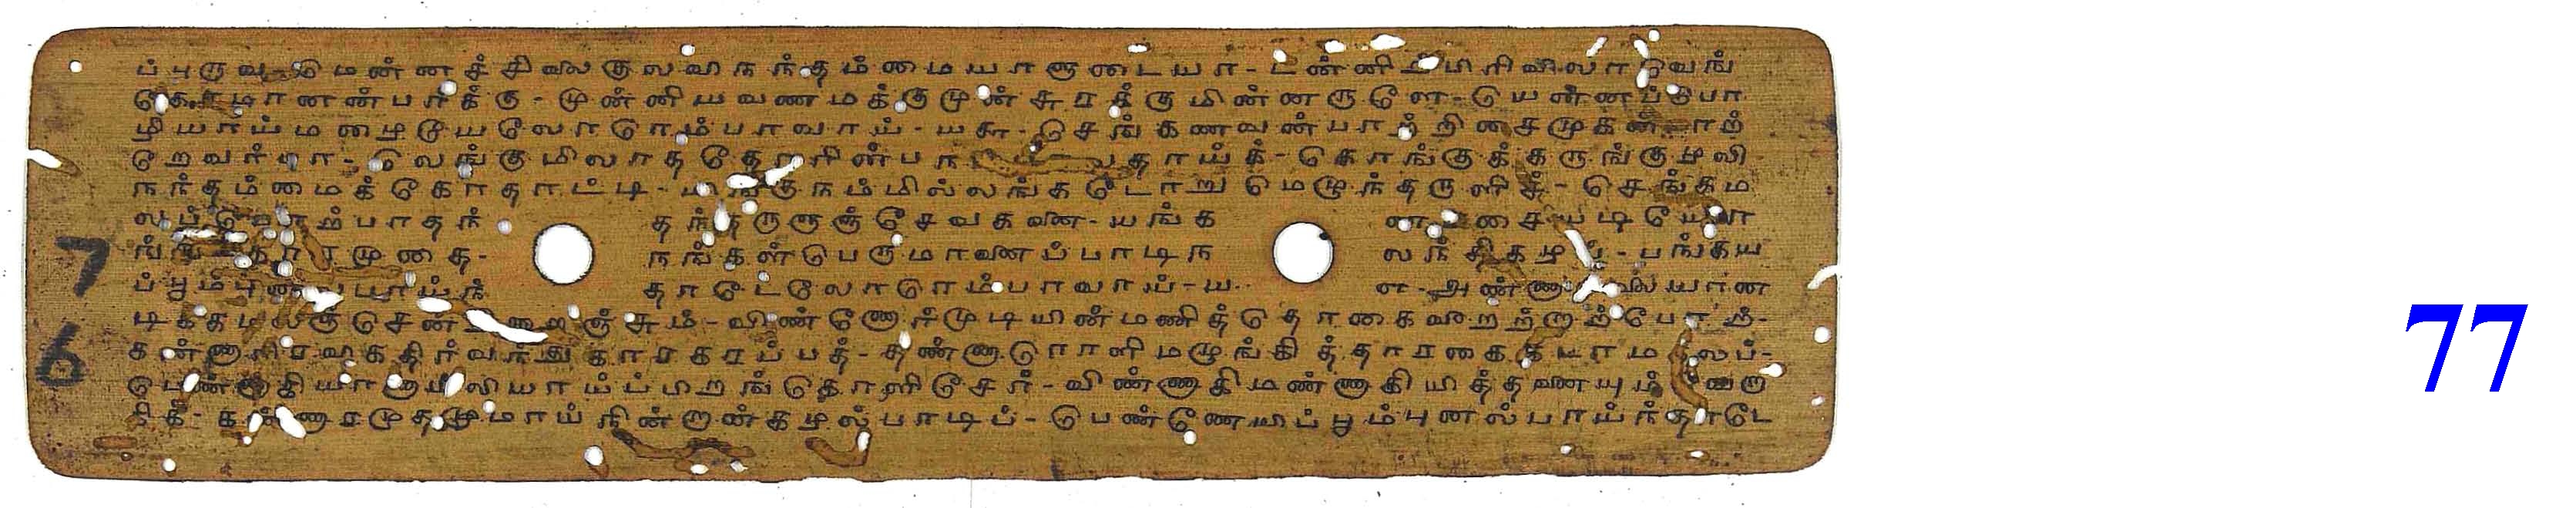 ப்புருவ மென்னச்சிலைகுலவி நந்தம்மையாளுடையா - டன்னிற்பிரிவிலா வெங்
கோமானன்பர்க்கு - முன்னியவணமக்குமுன்சுரக்குமின்னருளே - யென்னப்பொ
ழியாய்மழையேலோரெம்பாவாய் - யசு - செங்கணவன்பாற்றிசைமுகன் பாற்
றேவர்பா - லெங்குமிலாததோரின்பந தாய்க் - கொங்குக்கருங்குழலி
நந்தம்மைக்கோதாட்டி - யிங்குநம்மில்லங்கடோறு மெழுந்தருளிச் - செங்கம
லப்பொற்பாதந் தந்தருளுஞ்சேவகனை - யங்க ணரசையடியோ
ங் காரமுதை - நங்கள்பெருமானைப்பாடிந லந்திகழப் - பங்கய
ப்பூம்புனல்பாய்ந் தாடேலோரெம்பாவாய் - ய ள - அண்ணாமலையான
டிக்கமலஞ்சென் றிறைஞ்சும் - விண்ணோர்முடியின்மணித்தொகைவீறற்றாற்போற் -
கண்ணாரிரவிகதிர்வந்து காரகரப்பத் - தண்ணாரொளிமழுங்கித்தாரகைகடாமகலப் -
பெண்ணாகியாணாயலியாய்ப்பிறங்கொளிசேர் - விண்ணாகிமண்ணாகியித்தனையும் வேறா
கிக் - கண்ணாரமுதமுமாய்நின்றான்கழல்பாடிப் - பெண்ணேயிப்பூம்புனல்பாய்ந்தாடே
7
6
77